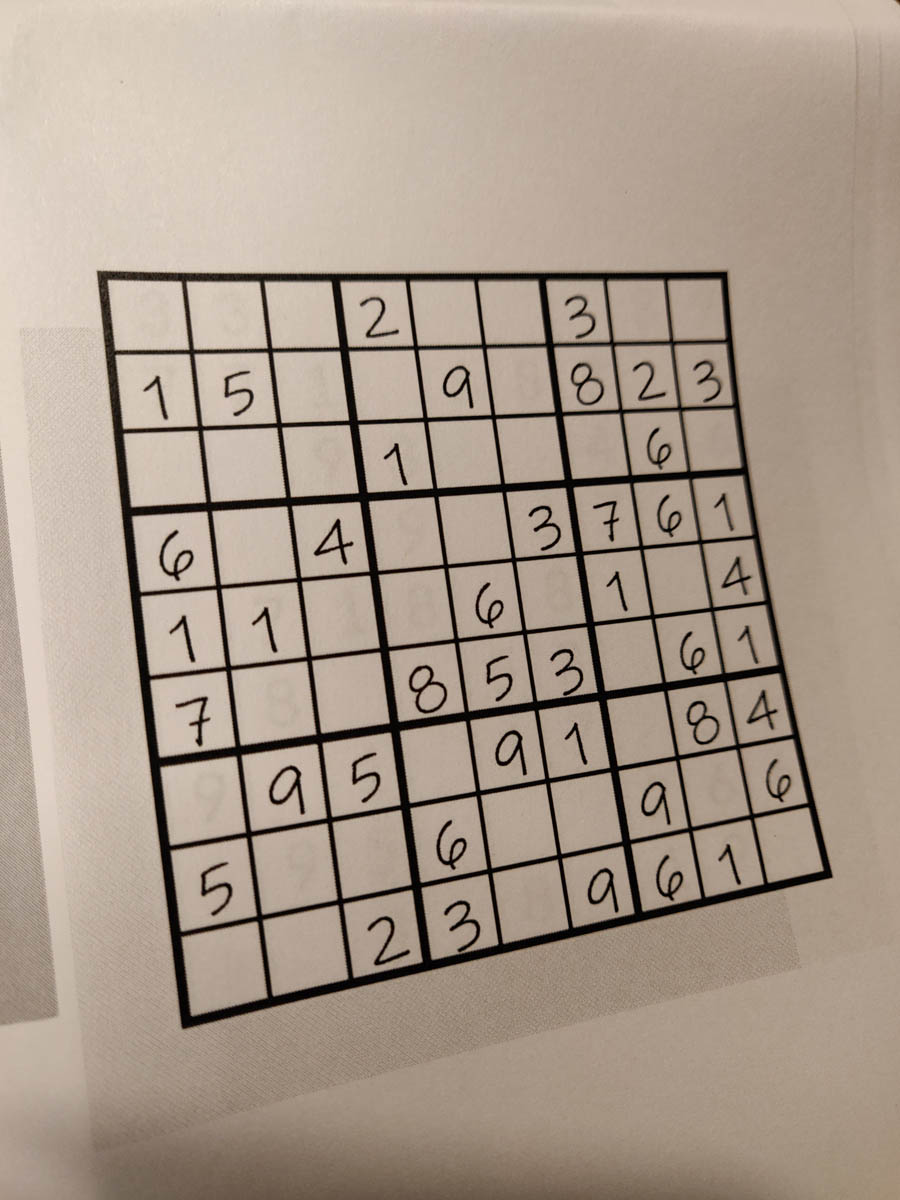 2 3
1 5 9 8 2 3
1 6
6 4 3 7 6 1
1 1 6 1 4
7 8 5 3 6 1
9 5 9 1 8 4
5 6 9 6
2 3 9 6 1